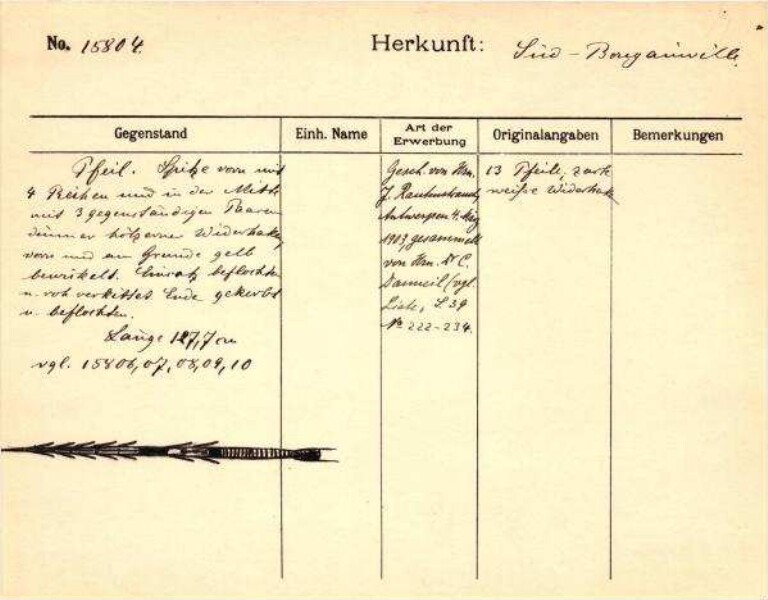 No. 15804.
Herkunft: Süd-Bougainville.
Gegenstand
Einh. Name
Art der Erwerbung
Originalangaben
Bemerkungen
Pfeil. Spitze vorn mit
4 Reihen und in der Mitte
mit 3 gegenständigen Paaren
dünner hölzerner Widerhaken,
vorn und am Grunde gelb
bewickelt. Einsatz beflochten
u. rot verkittet Ende gekerbt
u. beflochten.
Länge 127,7 cm
vgl. 15806,07,08,09,10
Gesch. von Hrn.
J. Rautenstrauch,
Antwerpen 4. May
1903, gesammelt
von Hrn. Dr C.
Danneil (vgl.
Liste, S. 39
No 222-234.
13 Pfeile, zarte
weisse Widerhaken